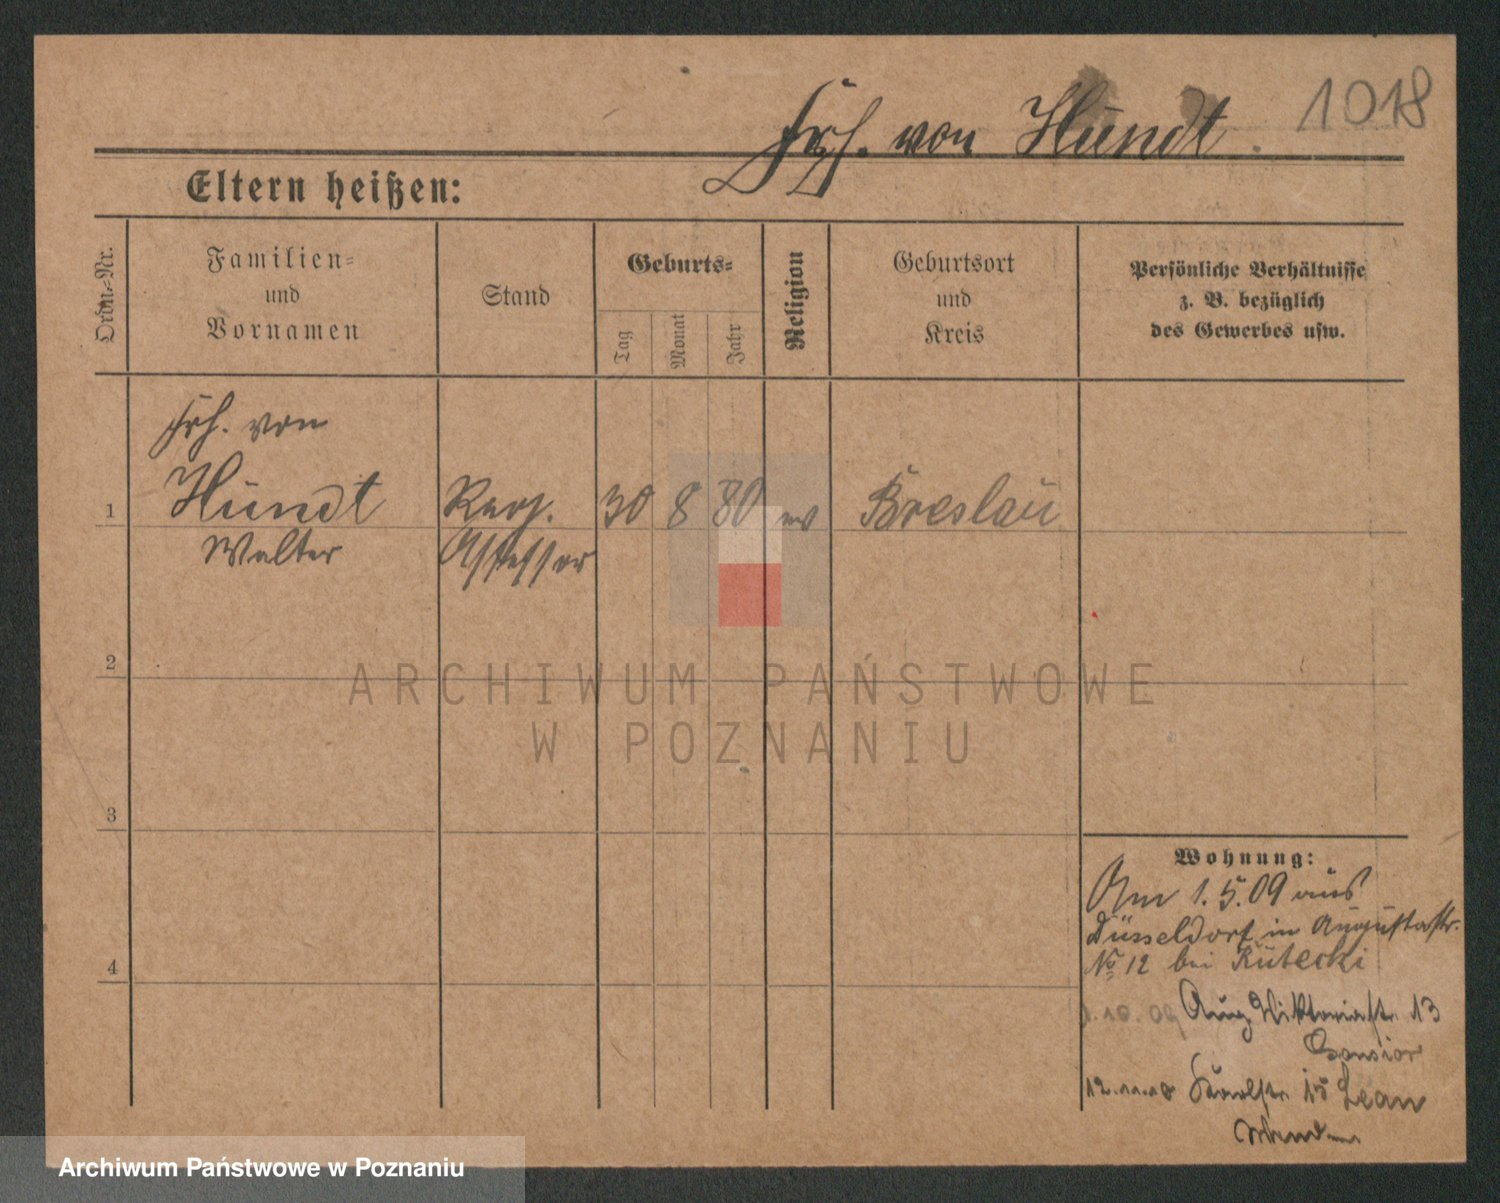 1018
Frh. von Hundt.
Eltern heißen:
Ordn.-Nr.
Familien-
und
Vornamen
Stand
Geburts-
Tag
Monat
Jahr
Religion
Geburtsort
und
Kreis
Persönliche Verhältnisse
z. B. bezüglich
des Gewerbes usw.
Frh. von
1 Hundt Reg. 30 8 80 Breslau
Walter Assessor
2
3
4
Wohnung:
Am 1.5.09 aus
Düsseldorf in Augustastr.
No 12 bei Rutecki
1.10.09 Aug. Viktoriastr. 13
Gonsior
12.11.10 Karlstr. 15
ARCHIWUM PAŃSTWOWE
W POZNANIU
Archiwum Państwowe w Poznaniu